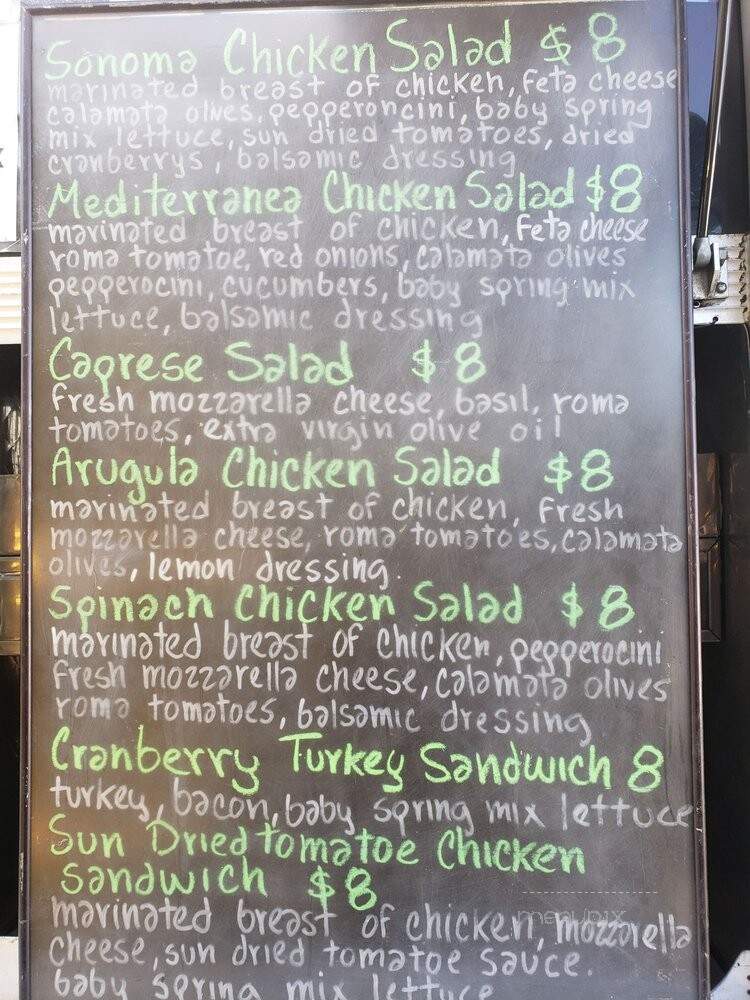 Sonoma Chicken Salad $8
marinated breast of chicken, feta cheese
calamata olves, pepperoncini, baby spring
mix lettuce, sun dried tomatoes, dried
cranberrys, balsamic dressing
Mediterranea Chicken Salad $8
marinated breast of chicken, feta cheese
roma tomatoe, red onions, calamata olives
pepperocini, cucumbers, baby spring mix
lettuce, balsamic dressing
Caprese Salad $8
fresh mozzarella cheese, basil, roma
tomatoes, extra virgin olive oil
Arugula Chicken Salad $8
marinated breast of chicken, fresh
mozzarella cheese, roma tomatoes, calamata
olives, lemon dressing.
Spinach Chicken Salad $8
marinated breast of chicken, pepperocini
fresh mozzarella cheese, calamata olives
roma tomatoes, balsamic dressing
Cranberry Turkey Sandwich 8
turkey, bacon, baby spring mix lettuce
Sun Dried tomatoe Chicken
sandwich $8
marinated breast of chicken, mozzarella
cheese, sun dried tomatoe sauce.
baby spring mix lettuce
menupix